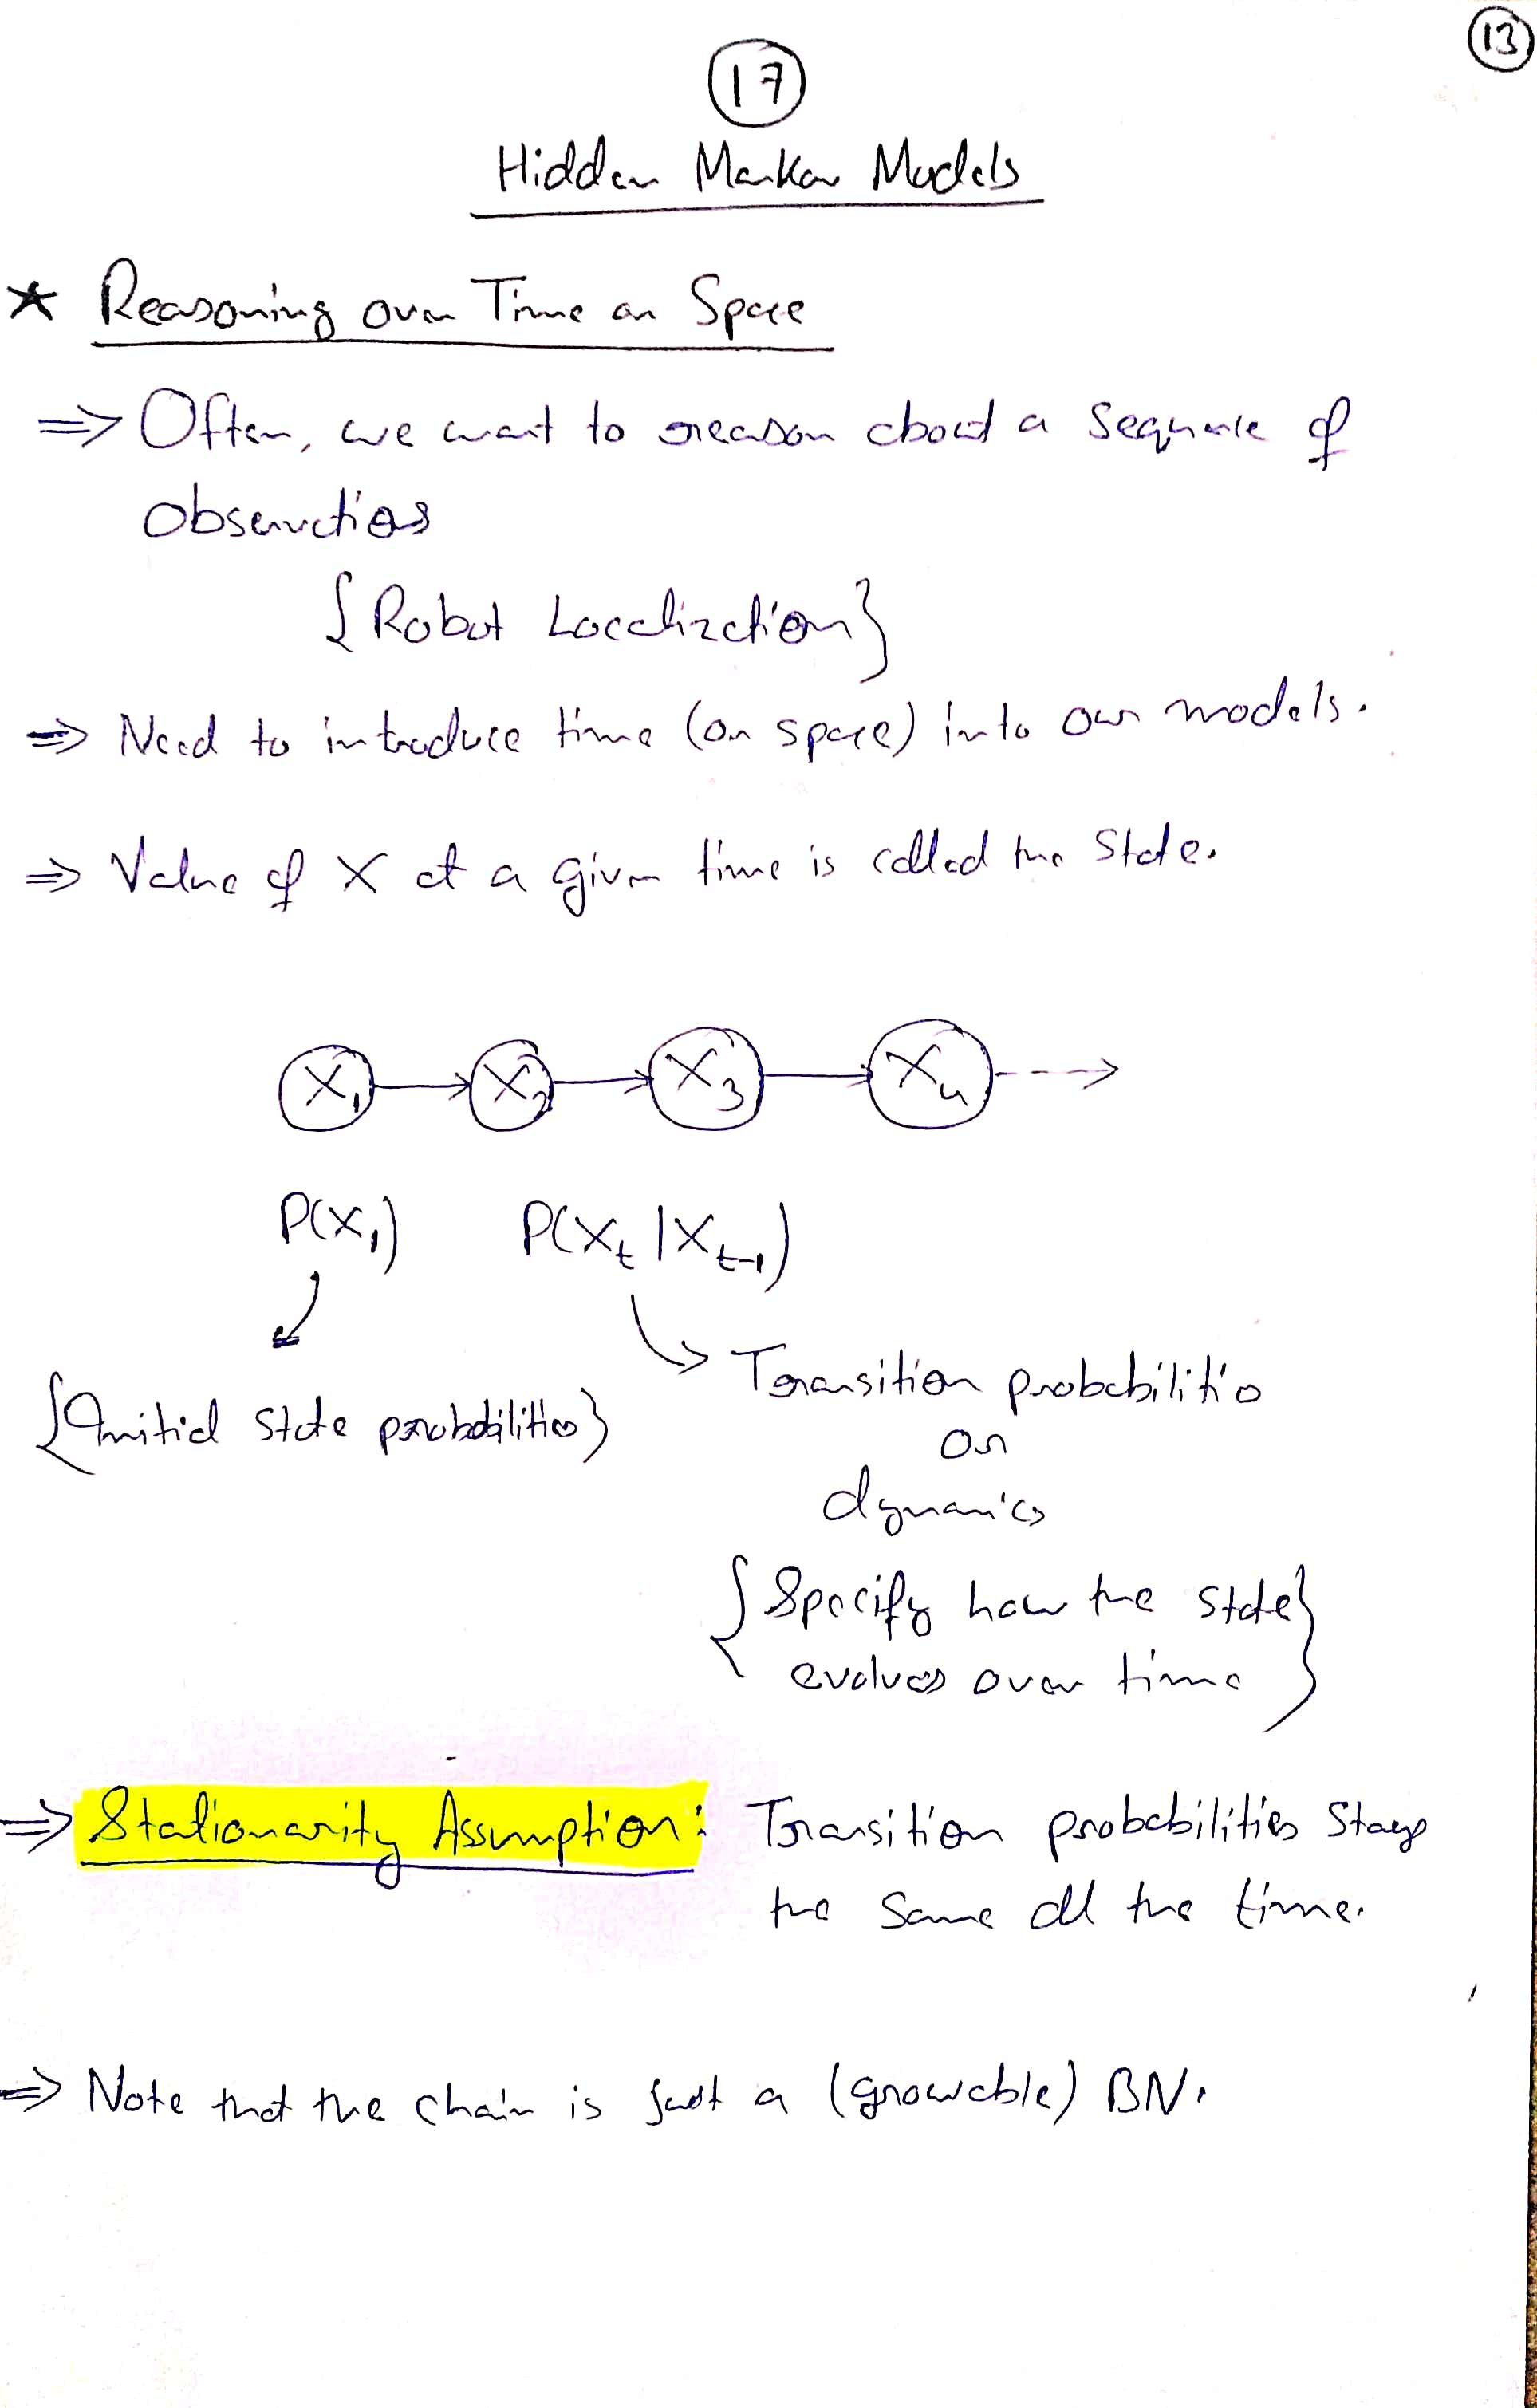 13
17
Hidden Markov Models
* Reasoning over Time or Space
⇒ Often, we want to reason about a sequence of
observations
{Robot Localization}
⇒ Need to introduce time (or space) into our models.
⇒ Value of X at a given time is called the state.
X₁ → X₂ → X₃ → X₄ ⇢
P(X₁) P(Xₜ|Xₜ₋₁)
Transition probabilities
{Initial state probabilities}
or
dynamics
{Specify how the state
evolves over time}
⇒ Stationarity Assumption: Transition probabilities stays
the same all the time.
⇒ Note that the chain is just a (growable) BN.